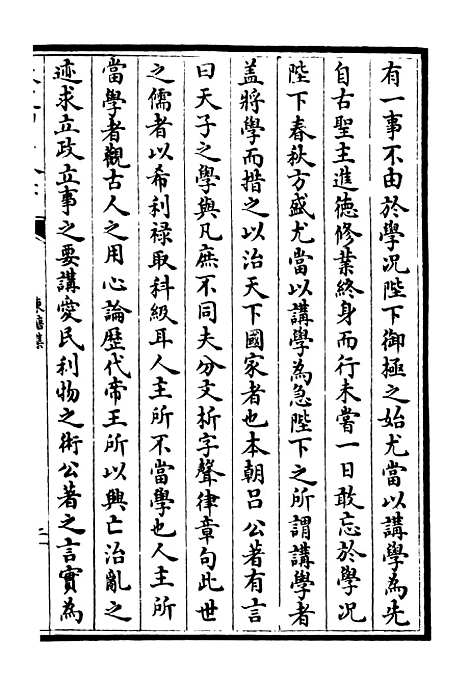 有一事不由於學况陛下御極之始尤當以講學為先
自古聖主進德修業終身而行未嘗一日敢忘於學况
陛下春秋方盛尤當以講學為急陛下之所謂講學者
盖將學而措之以治天下國家者也本朝吕公著有言
曰天子之學與凡庶不同夫分文析字聲律章句此世
之儒者以希利禄取科級耳人主所不當學也人主所
當學者觀古人之用心論歴代帝王所以興亡治亂之
迹求立政立事之要講愛民利物之術公著之言實為
東塘集
二